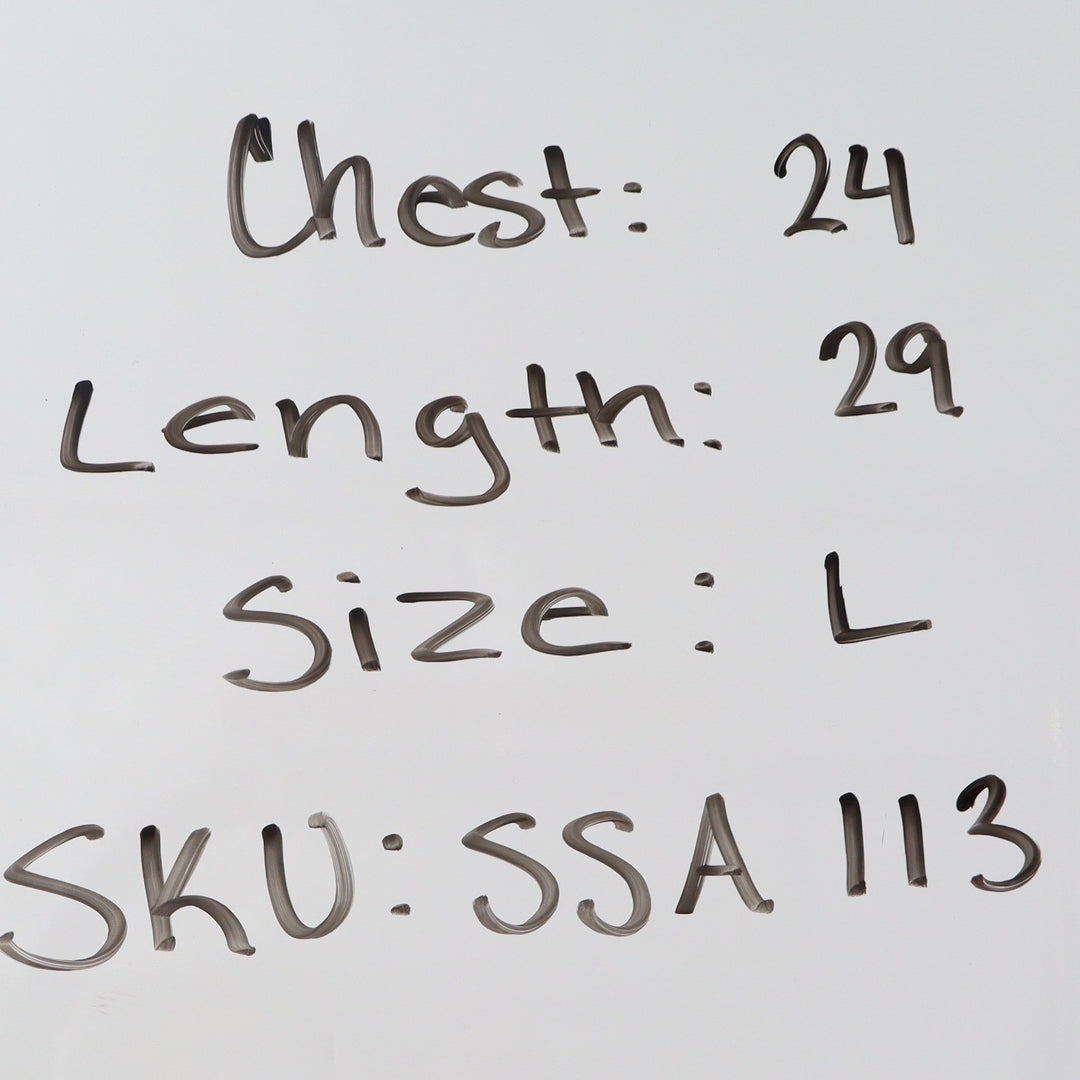 Chest: 24
Length: 29
Size: L
SKU: SSA 113